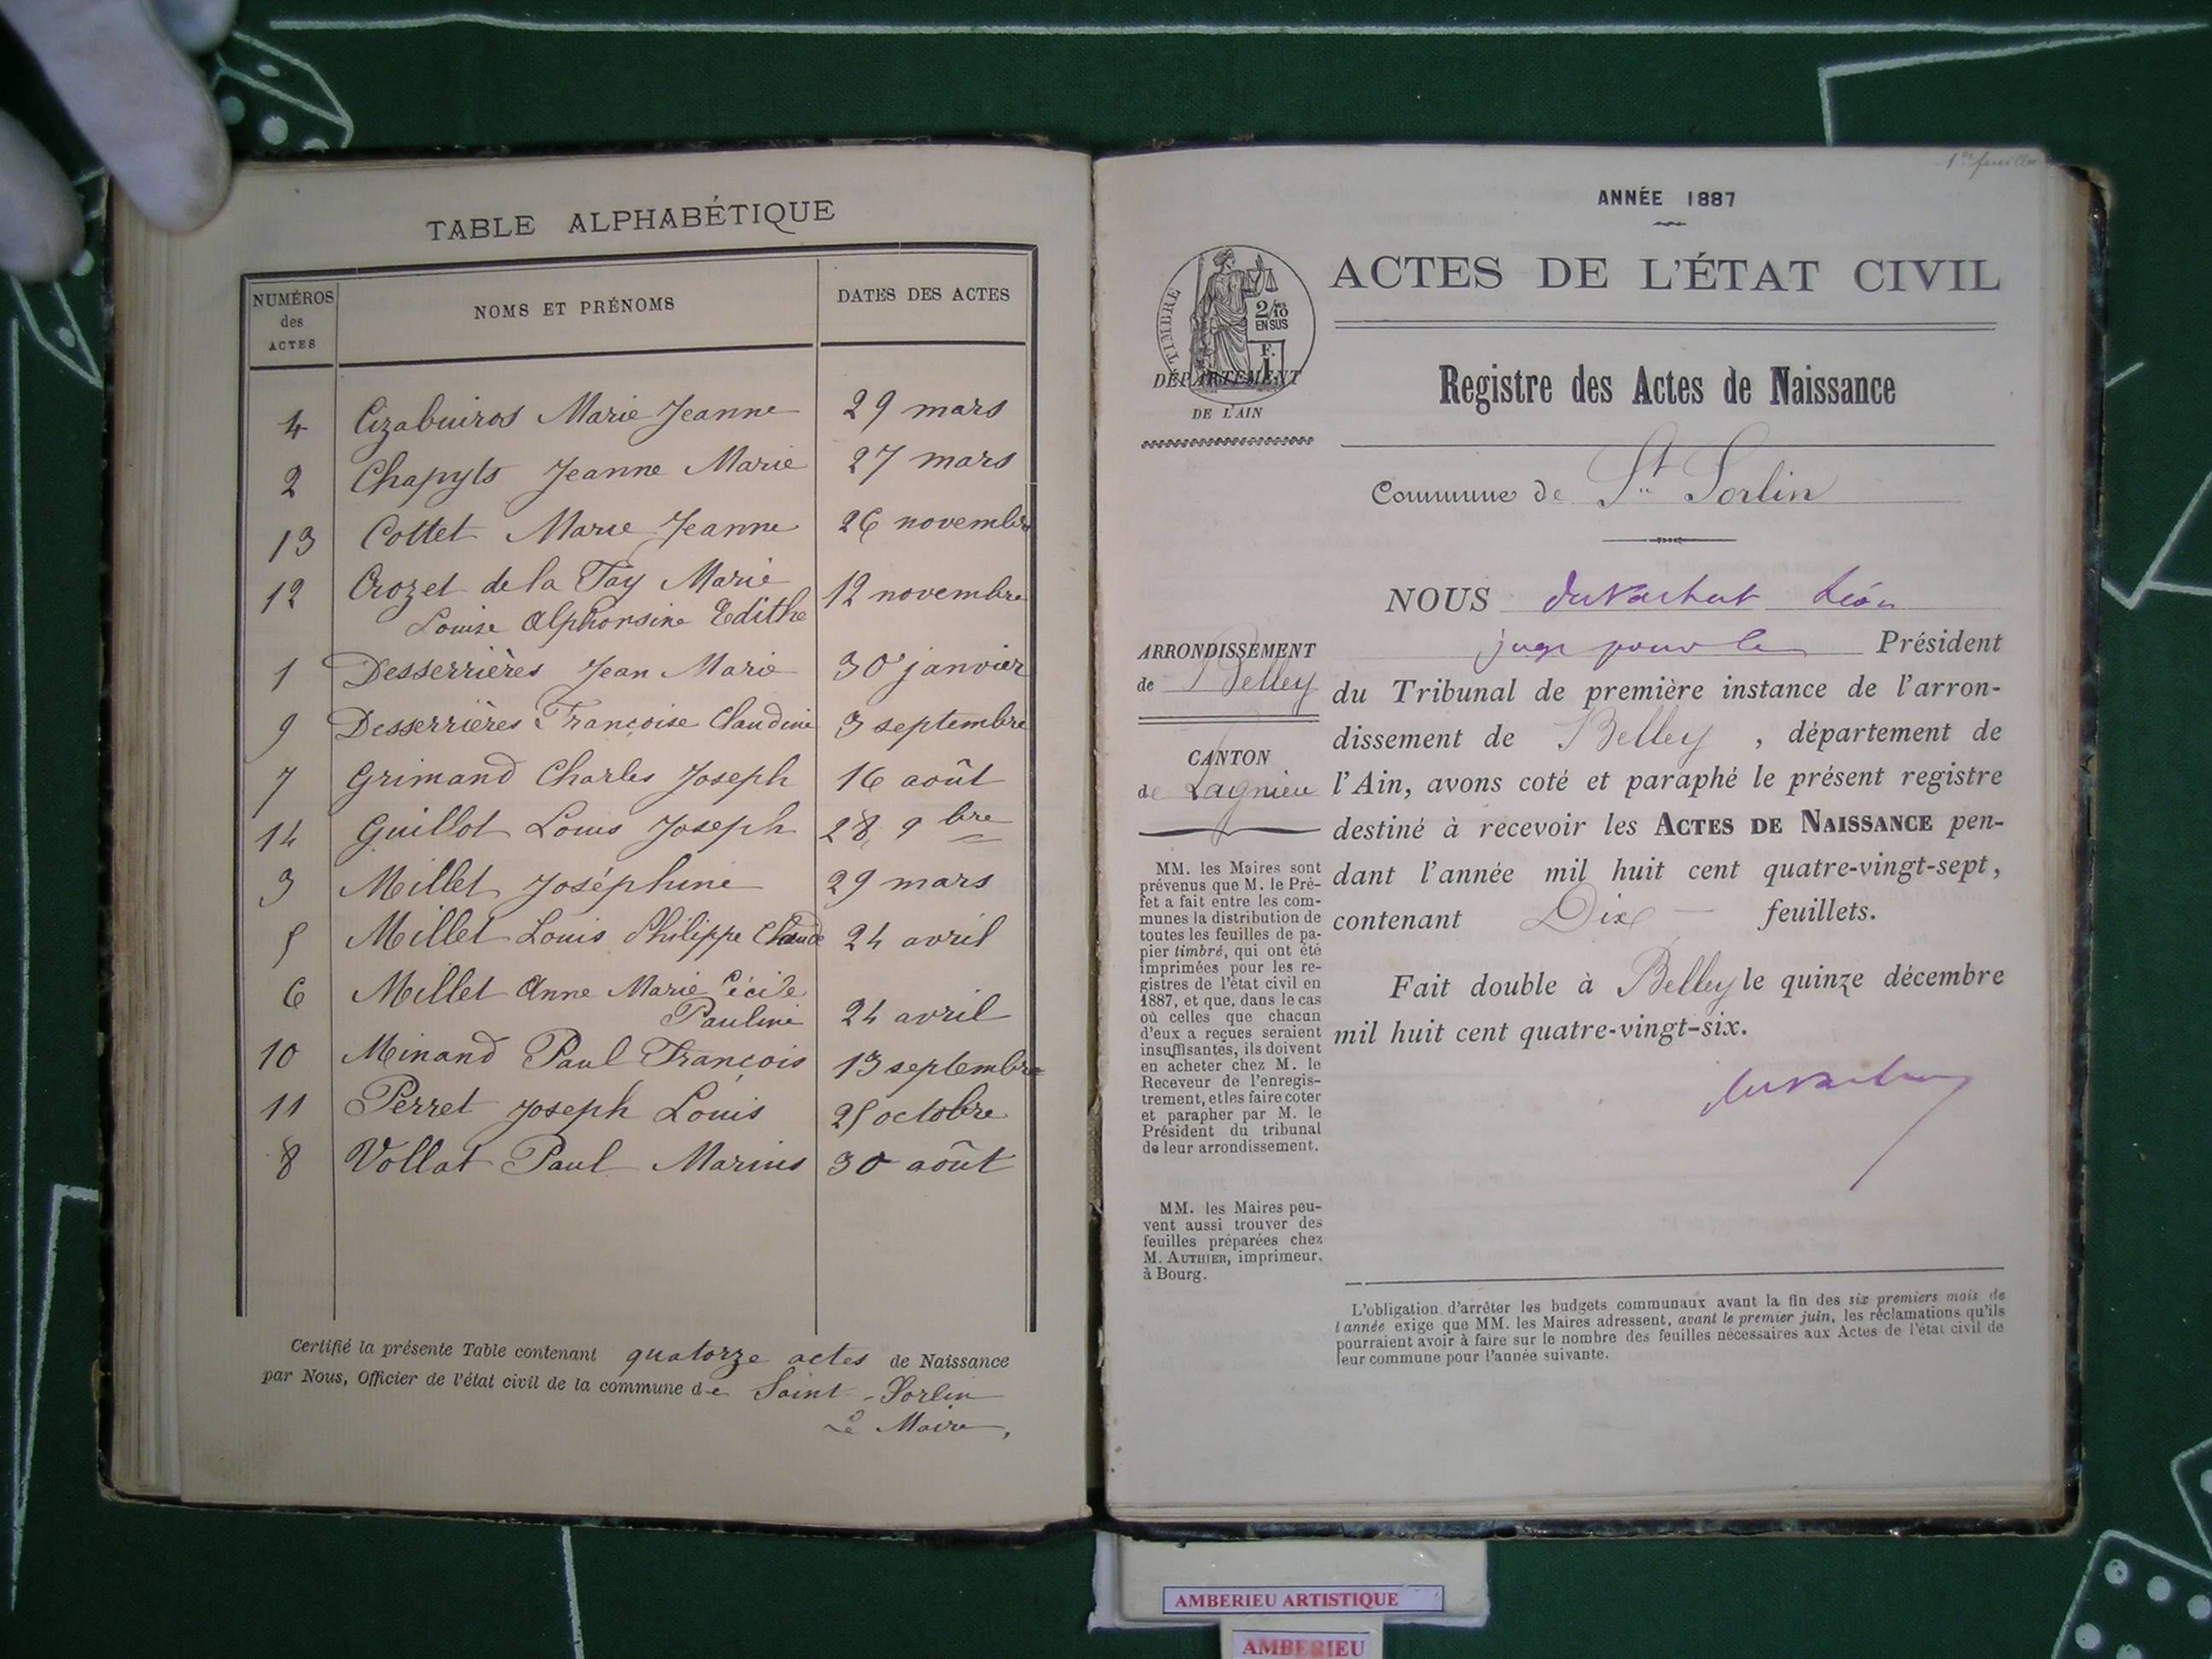 TABLE ALPHABÉTIQUE
NUMÉROS
des
ACTES
NOMS ET PRÉNOMS
DATES DES ACTES
4 Marie Jeanne 29 mars
2 Jeanne Marie 27 mars
13 Cottet Marie Jeanne 26 novembre
12 Crozet de la Fay Marie 12 novembre
Louise Alphonsine Edithe
1 Desserrières Jean Marie 30 janvier
9 Desserrières Françoise Claudine 3 septembre
7 Grimand Charles Joseph 16 août
14 Guillot Louis Joseph 28 9bre
3 Millet Joséphine 29 mars
5 Millet Louis Philippe Claude 24 avril
6 Millet Anne Marie Cécile
Pauline 24 avril
10 Minand Paul François 13 septembre
11 Perret Joseph Louis 25 octobre
8 Vollat Paul Marius 30 août
Certifié la présente Table contenant quatorze actes de Naissance
par Nous, Officier de l'état civil de la commune de Saint-Sorlin
Le Maire,
1er feuillet
ANNÉE 1887
ACTES DE L'ÉTAT CIVIL
TIMBRE
2/10
EN SUS
1 F.
DÉPARTEMENT
DE L'AIN
Registre des Actes de Naissance
Commune de St Sorlin
NOUS Léon
juge pour le Président
du Tribunal de première instance de l'arron-
dissement de Belley, département de
l'Ain, avons coté et paraphé le présent registre
destiné à recevoir les ACTES DE NAISSANCE pen-
dant l'année mil huit cent quatre-vingt-sept,
contenant Dix feuillets.
Fait double à Belley le quinze décembre
mil huit cent quatre-vingt-six.
ARRONDISSEMENT
de Belley
CANTON
de Lagnieu
MM. les Maires sont
prévenus que M. le Pré-
fet a fait entre les com-
munes la distribution de
toutes les feuilles de pa-
pier timbré, qui ont été
imprimées pour les re-
gistres de l'état civil en
1887, et que, dans le cas
où celles que chacun
d'eux a reçues seraient
insuffisantes, ils doivent
en acheter chez M. le
Receveur de l'enregis-
trement, et les faire coter
et parapher par M. le
Président du tribunal
de leur arrondissement.
MM. les Maires peu-
vent aussi trouver des
feuilles préparées chez
M. AUTHIER, imprimeur,
à Bourg.
L'obligation d'arrêter les budgets communaux avant la fin des six premiers mois de
l'année exige que MM. les Maires adressent, avant le premier juin, les réclamations qu'ils
pourraient avoir à faire sur le nombre des feuilles nécessaires aux Actes de l'état civil de
leur commune pour l'année suivante.
AMBERIEU ARTISTIQUE
AMBERIEU